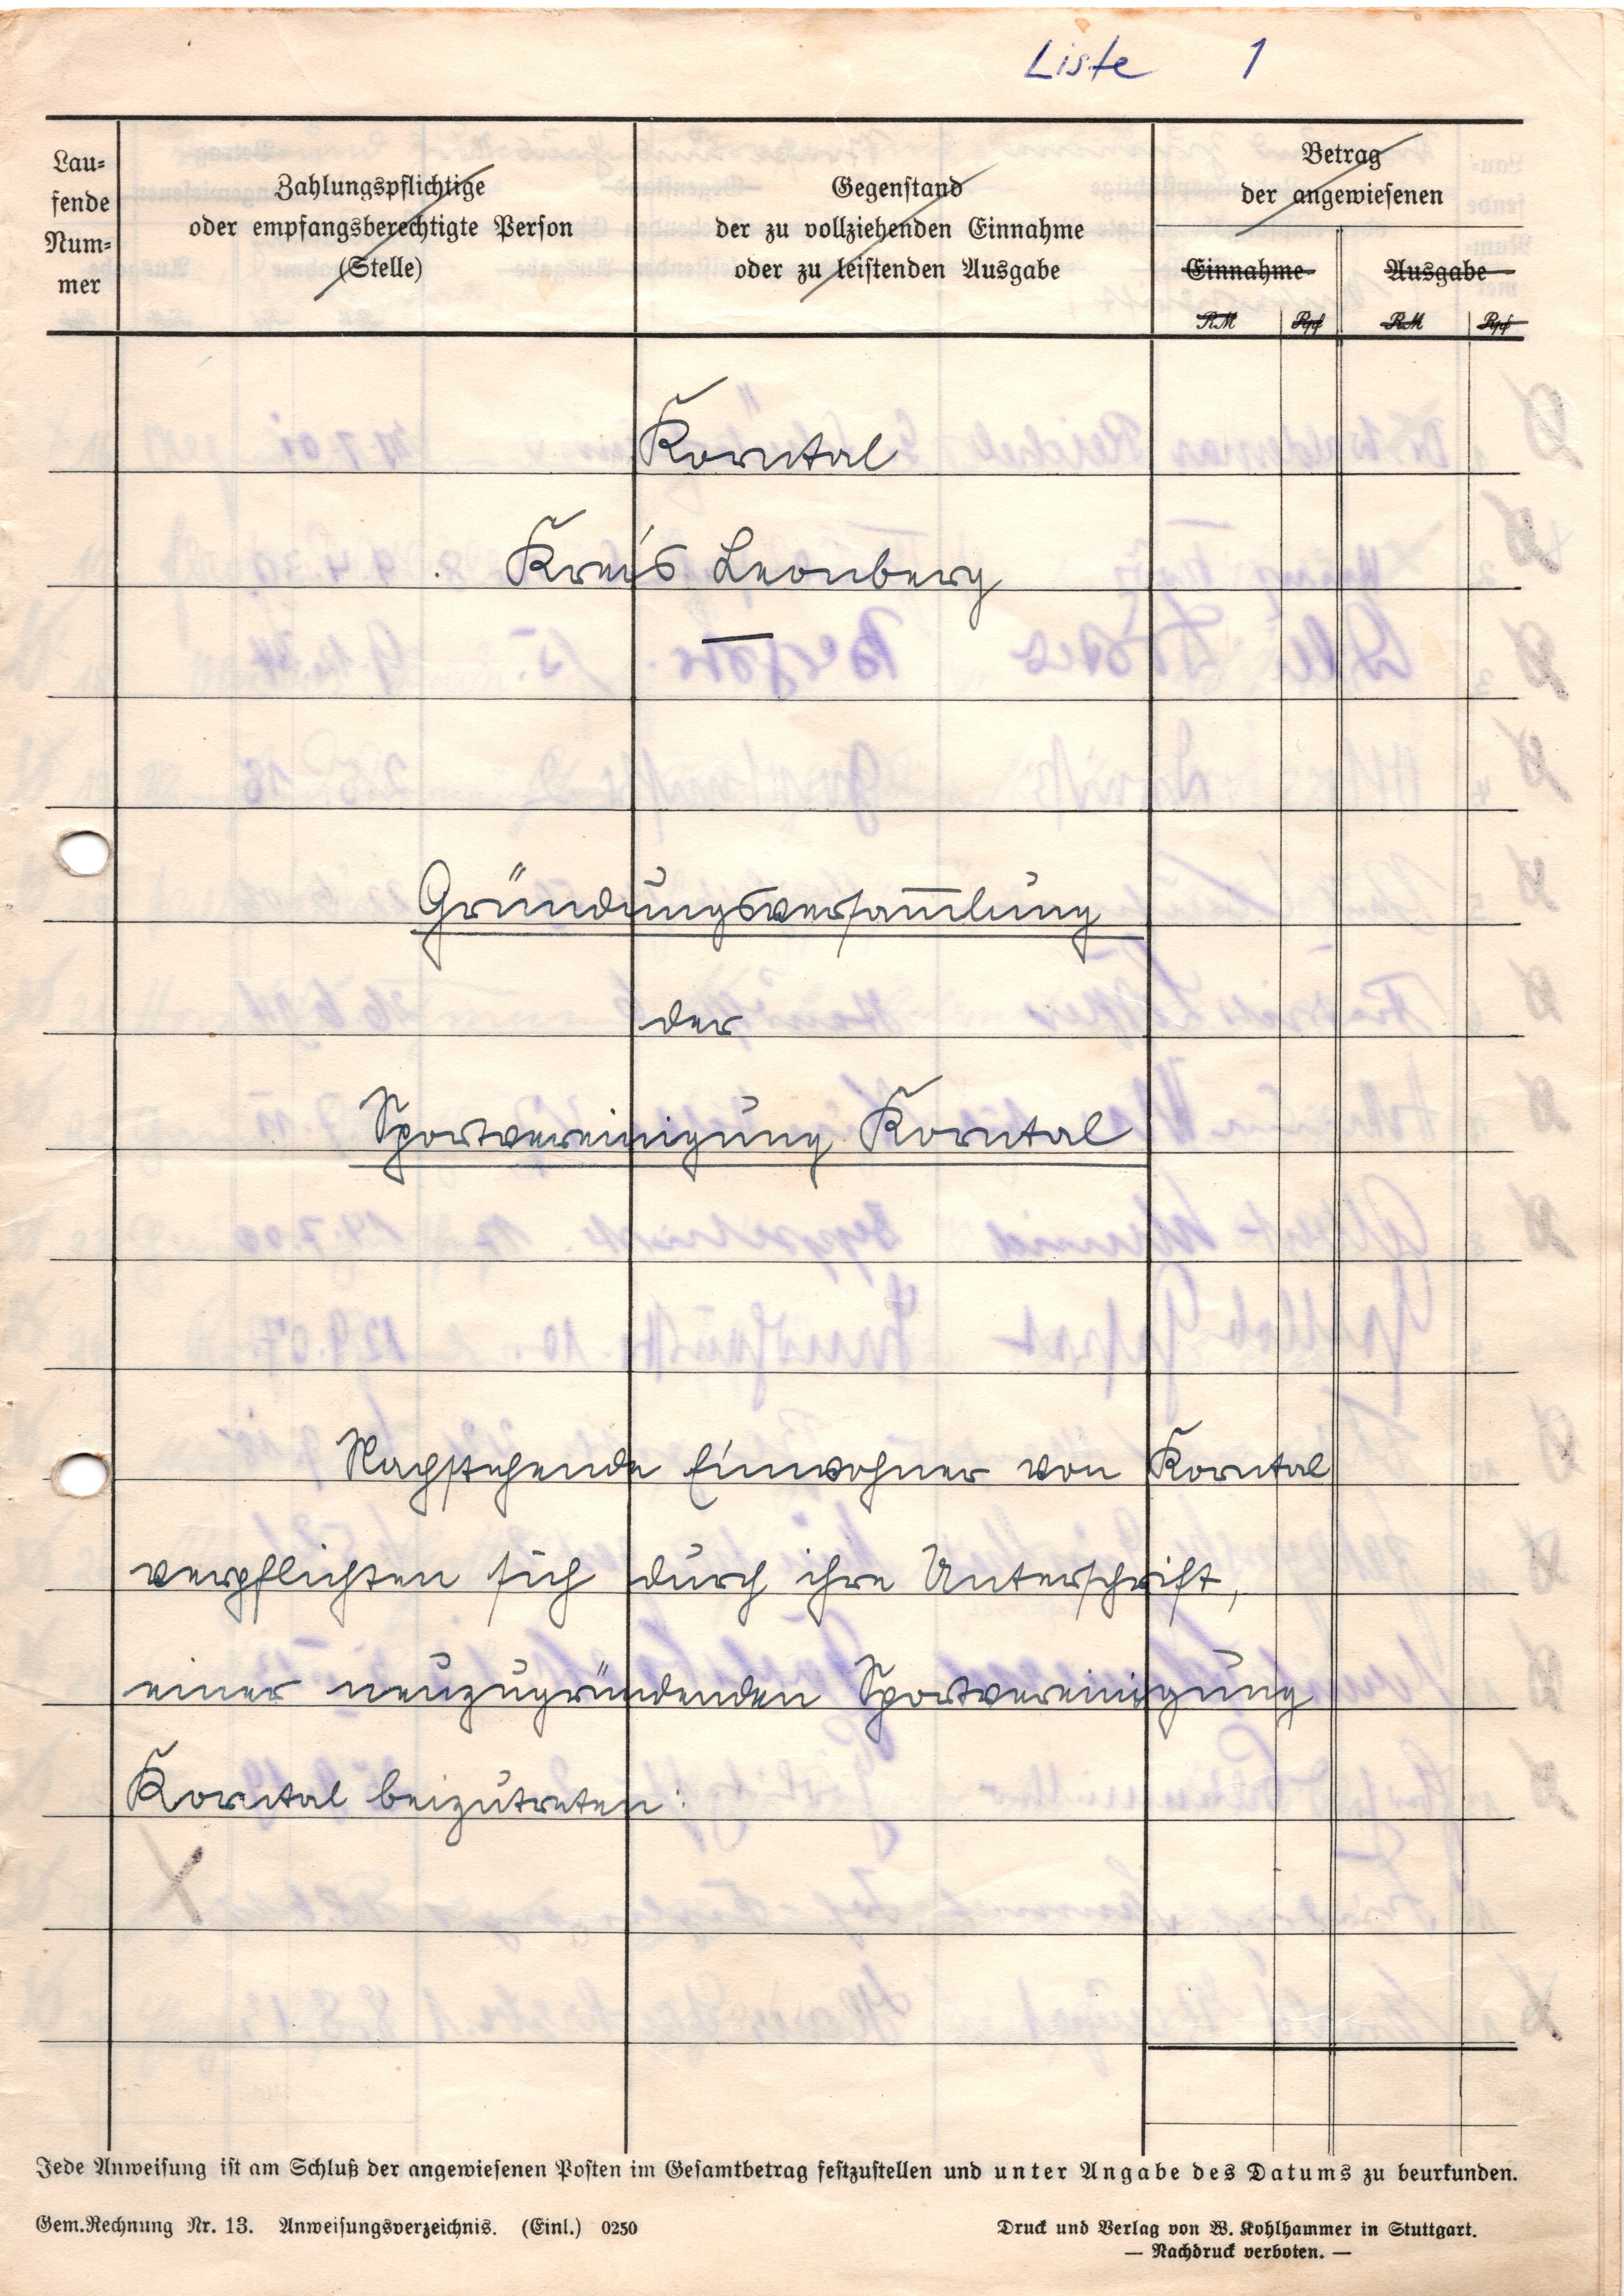 Liste 1
Lau-
fende
Num-
mer
Zahlungspflichtige
oder empfangsberechtigte Person
(Stelle)
Gegenstand
der zu vollziehenden Einnahme
oder zu leistenden Ausgabe
Betrag
der angewiesenen
Einnahme Ausgabe
RM Rpf RM Rpf
Korntal
Kreis Leonberg
Gründungsversam̅lung
der
Sportvereinigung Korntal
Nachstehende Einwohner von Korntal
verpflichten sich durch ihre Unterschrift,
einer neuzugründenden Sportvereinigung
Korntal beizutreten:
Jede Anweisung ist am Schluß der angewiesenen Posten im Gesamtbetrag festzustellen und unter Angabe des Datums zu beurkunden.
Gem.Rechnung Nr. 13. Anweisungsverzeichnis. (Einl.) 0250
Druck und Verlag von W. Kohlhammer in Stuttgart.
— Nachdruck verboten. —